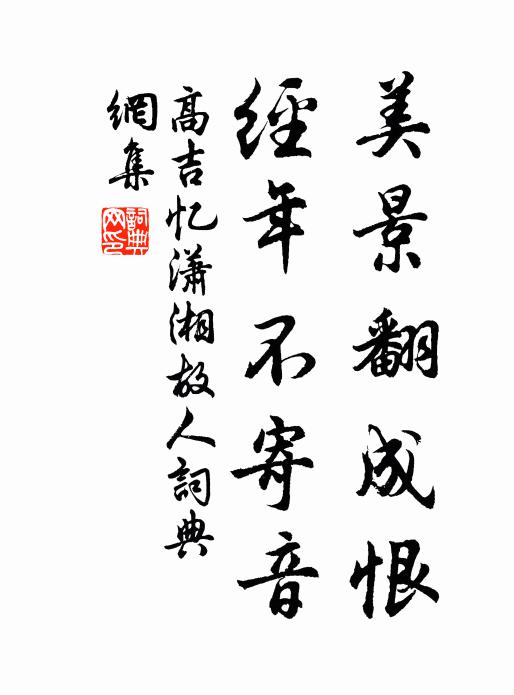 美景翻成恨
經年不寄音
高吉忆瀟湘故人詞典
網集
詞典
网印